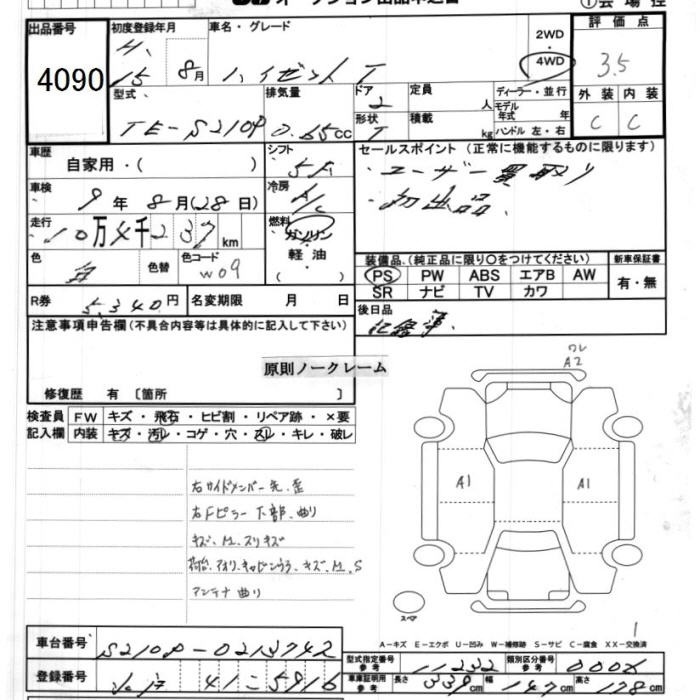 オークション出品申込書 ①会場控
出品番号 初度登録年月 車名・グレード 評価点
4090 H. 15 8月 ハイゼット T 2WD 4WD 3.5
型式 排気量 ドア 2 定員 人 ディーラー・並行 外装 内装
TE-S210P 0.65cc 形状 T 積載 kg モデル年式 年 ハンドル 左・右 C C
車歴 自家用・( ) シフト 5F セールスポイント (正常に機能するものに限ります)
車検 9年8月(28日) 冷房 A/C ・ユーザー買取り
・初出品、
走行 10万4千237km 燃料 ガソリン・軽油・( )
色 白 色替 色コード W09
装備品 (純正品に限り○をつけてください) 新車保証書
PS PW ABS エアB AW 有・無
SR ナビ TV カワ
R券 5,340円 名変期限 月 日 後日品 記録簿、
注意事項申告欄(不具合内容等は具体的に記入して下さい)
原則ノークレーム
修復歴 有〔箇所 〕
ワレ
A2
検査員 FW キズ・飛石・ヒビ割・リペア跡・×要
記入欄 内装 キズ・汚レ・コゲ・穴・スレ・キレ・破レ
A1 A1
右サイドメンバー先、歪
右Fピラー下部、曲り
キズ、M、スリキズ
荷台、アオリ、キャビンウラ、キズ、M、S
アンテナ曲り
スペア
1
A-キズ E-エクボ U-凹み W-補修跡 S-サビ C-腐食 XX-交換済
車台番号 S210P-0213742 型式指定番号 参考 11232 類別区分番号 参考 000X
登録番号 41 こ 5916 車庫証明用 参考 長さ 339cm 幅 147cm 高さ 178cm